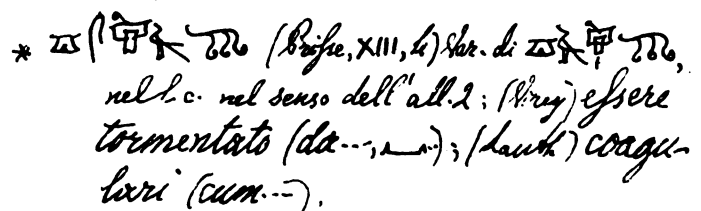 * (Prisse, XIII, 4) Var. di
nel l. c. nel senso dell' all. 2 ; (Virey) essere
tormentato (da ...., ....) ; (Lauth) coagu-
lari (cum ....).